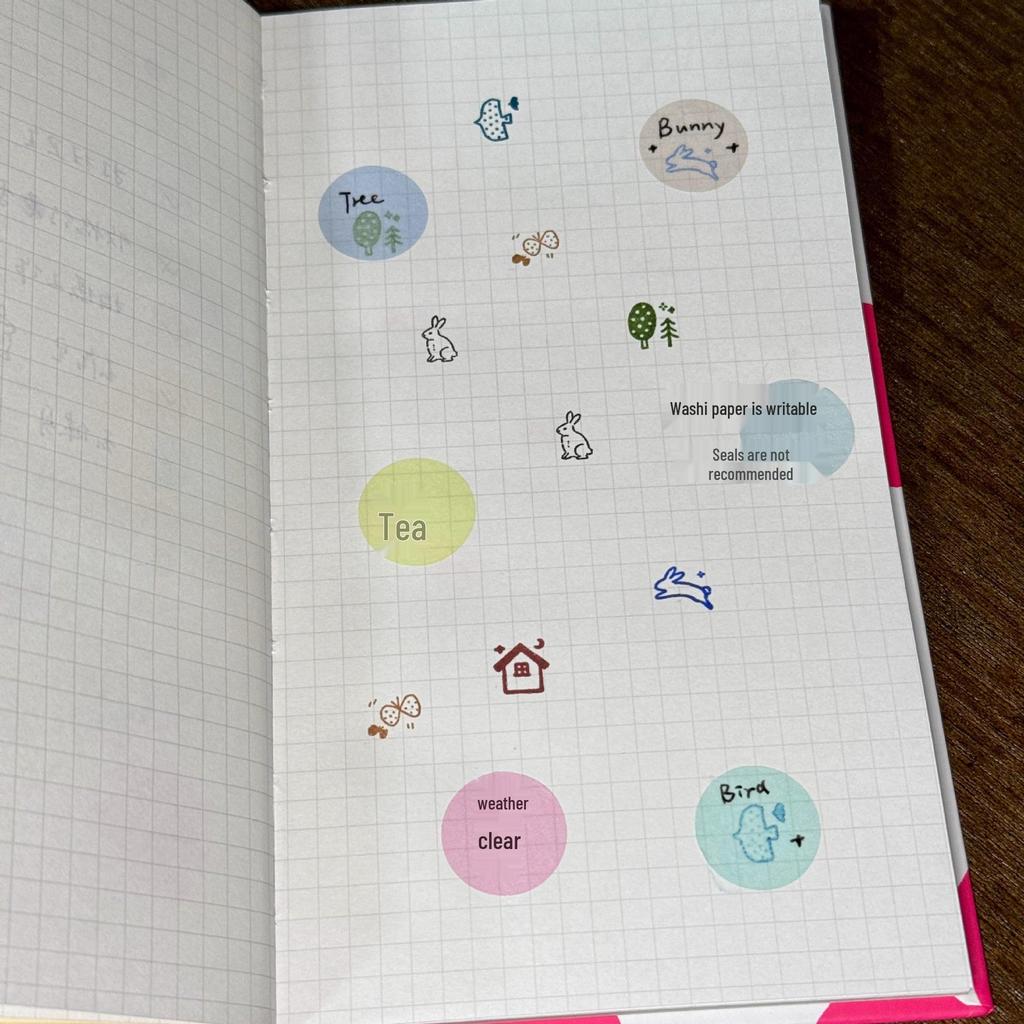 Bunny
Tree
Washi paper is writable
Seals are not
recommended
Tea
weather
clear
Bird